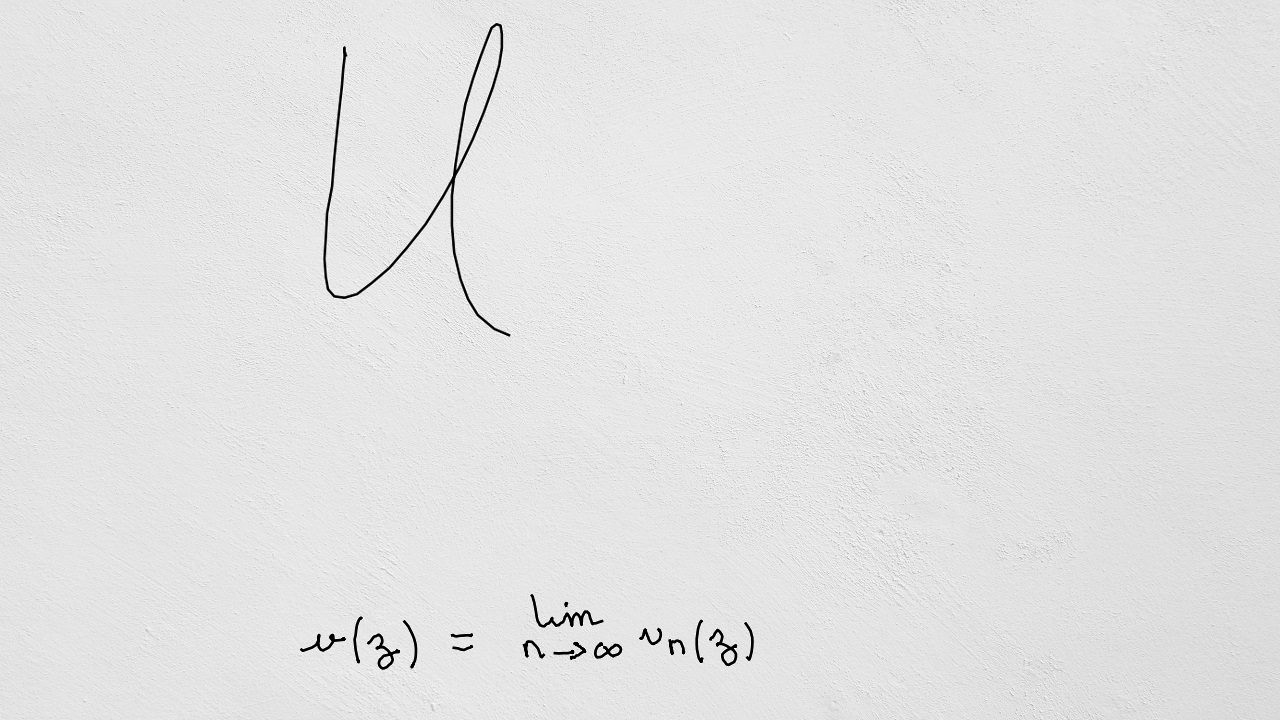 u
v(z) = lim n→∞ v_n(z)